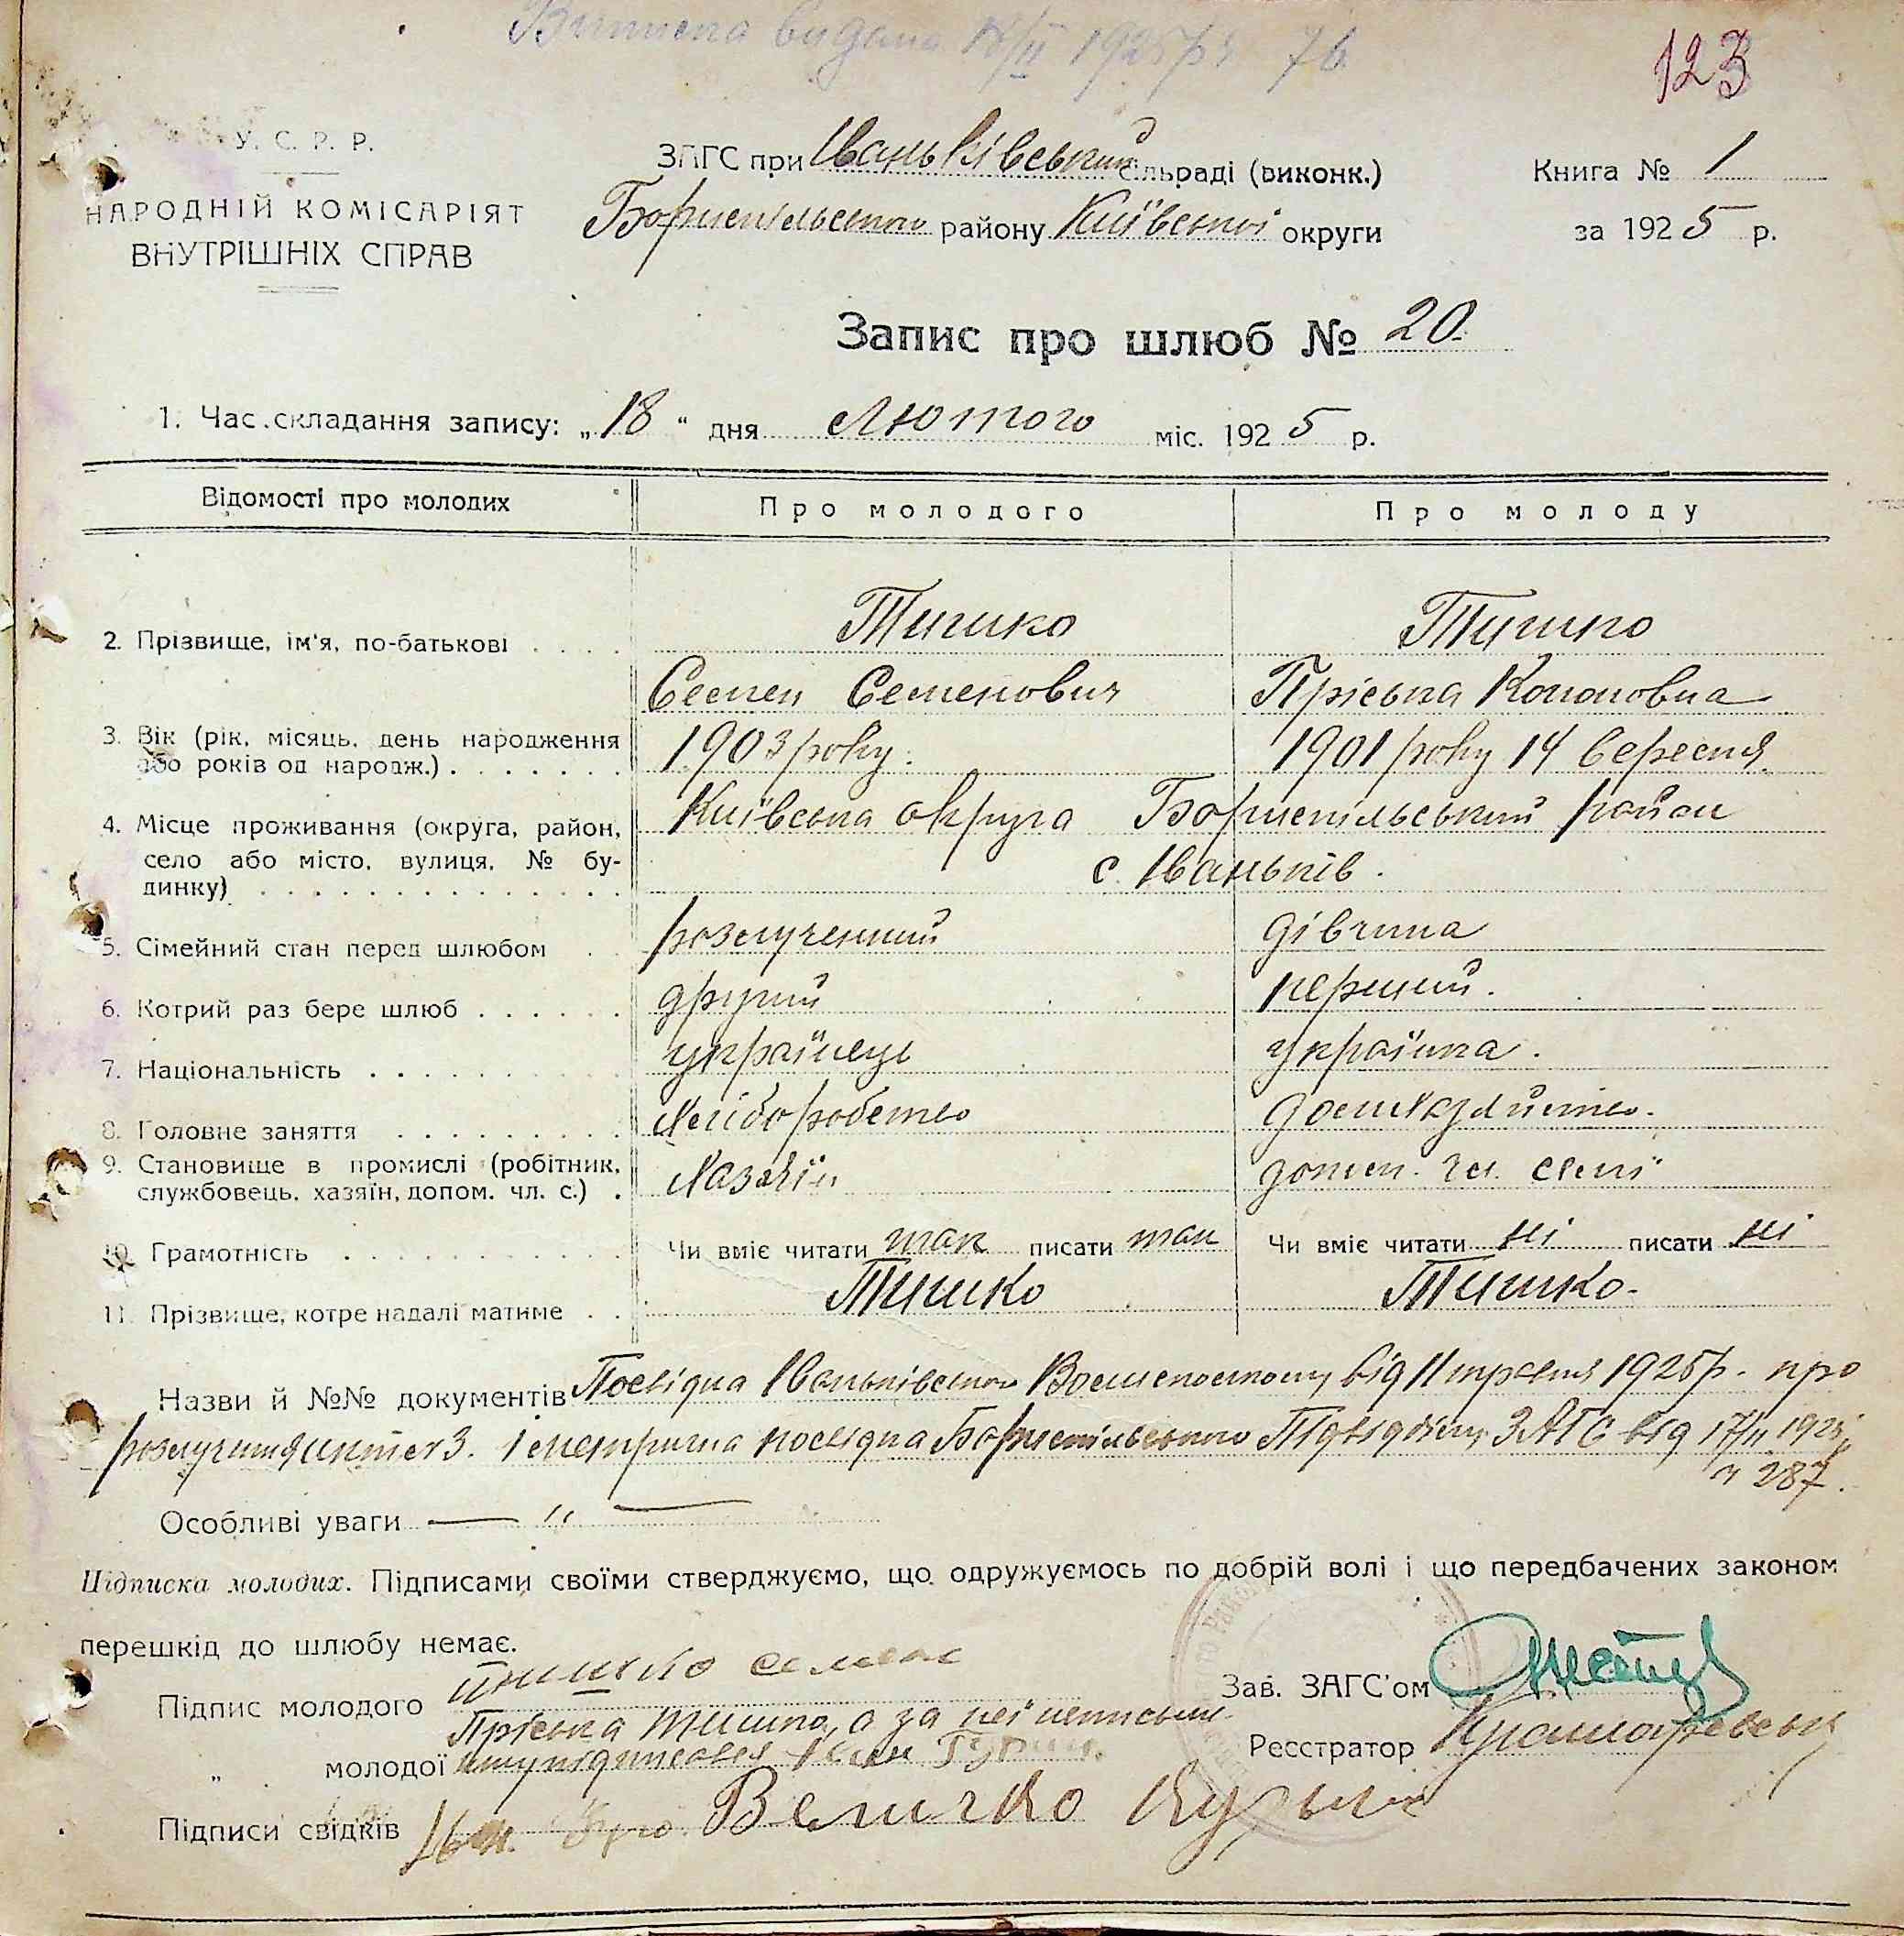 Виписка видана 18/II 1925 р. 76
123
У. С. Р. Р.
НАРОДНІЙ КОМІСАРІЯТ
ВНУТРІШНІХ СПРАВ
ЗАГС при Іваньківський сільраді (виконк.)
Бориспільського району Київської округи
Книга № 1
за 1925 р.
Запис про шлюб № 20.
1. Час складання запису: „18“ дня Лютого міс. 1925 р.
Відомості про молодих Про молодого Про молоду
2. Прізвище, ім'я, по-батькові . . . . Тишко Тишко
Семен Семенович Пріська Кононовна
3. Вік (рік, місяць, день народження
або років од народж.) . . . . . . . 1903 року. 1901 року 14 вересня.
4. Місце проживання (округа, район, Київська округа Бориспільський район
село або місто, вулиця, № бу-
динку) . . . . . . . . . . . . . . . с. Іваньків.
5. Сімейний стан перед шлюбом . . розлученний дівчина
6. Котрий раз бере шлюб . . . . . . другий перший.
7. Національність . . . . . . . . . . українець українка.
8. Головне заняття . . . . . . . . . хліборобство домхазяйство.
9. Становище в промислі (робітник,
службовець, хазяїн, допом. чл. с.) . Хазяїн допом. чл. семї
10. Грамотність . . . . . . . . . . . Чи вміє читати так писати так Чи вміє читати ні писати ні
11. Прізвище, котре надалі матиме . . Тишко Тишко.
Назви й №№ документів Посвідка Іваньківського від 11 1925 р. про
3. і метрична посвідка Бориспільського Підвідділу ЗАГС від 17/II 1925
ч 287.
Особливі уваги — " —
Підписка молодих. Підписами своїми стверджуємо, що одружуємось по добрій волі і що передбачених законом
перешкід до шлюбу немає.
Підпис молодого тишко семен
Пріська Тишко, а за неї неписьмен
„ молодої ну підписався Іван
Зав. ЗАГС'ом
Реєстратор
Підписи свідків Величко Кузьма